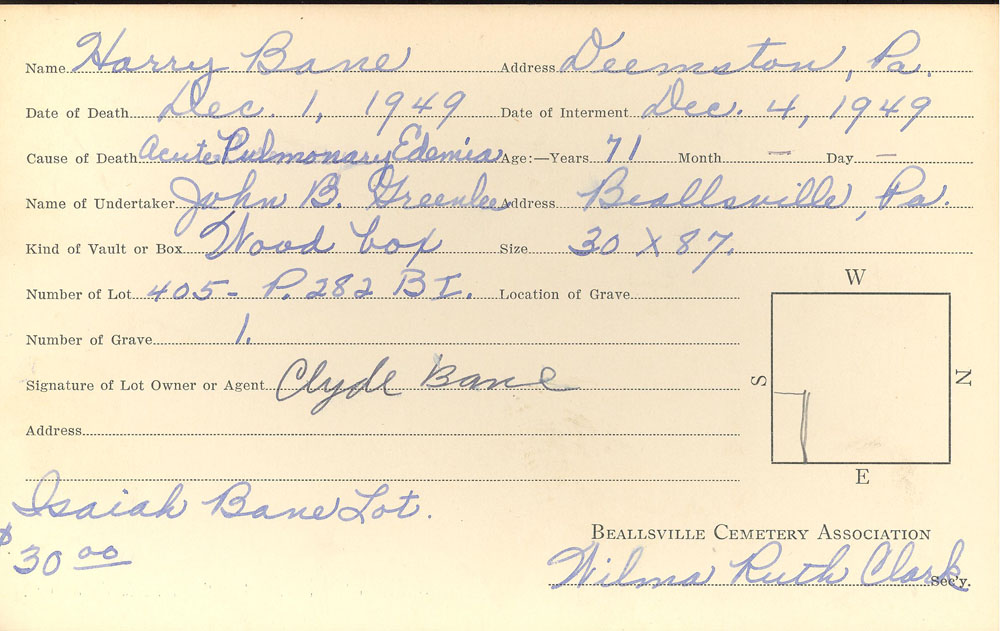 Name Harry Bane Address Deemston, Pa.
Date of Death Dec. 1, 1949 Date of Interment Dec. 4, 1949
Cause of Death Acute Pulmonary Edemia Age:—Years 71 Month — Day —
Name of Undertaker John B. Greenlee Address Beallsville, Pa.
Kind of Vault or Box Wood box Size 30 X 87.
Number of Lot 405- P. 282 B I. Location of Grave
W
Number of Grave 1.
S N
Signature of Lot Owner or Agent Clyde Bane
Address
E
Isaiah Bane Lot.
$30 00
BEALLSVILLE CEMETERY ASSOCIATION
Wilma Ruth Clark Sec'y.